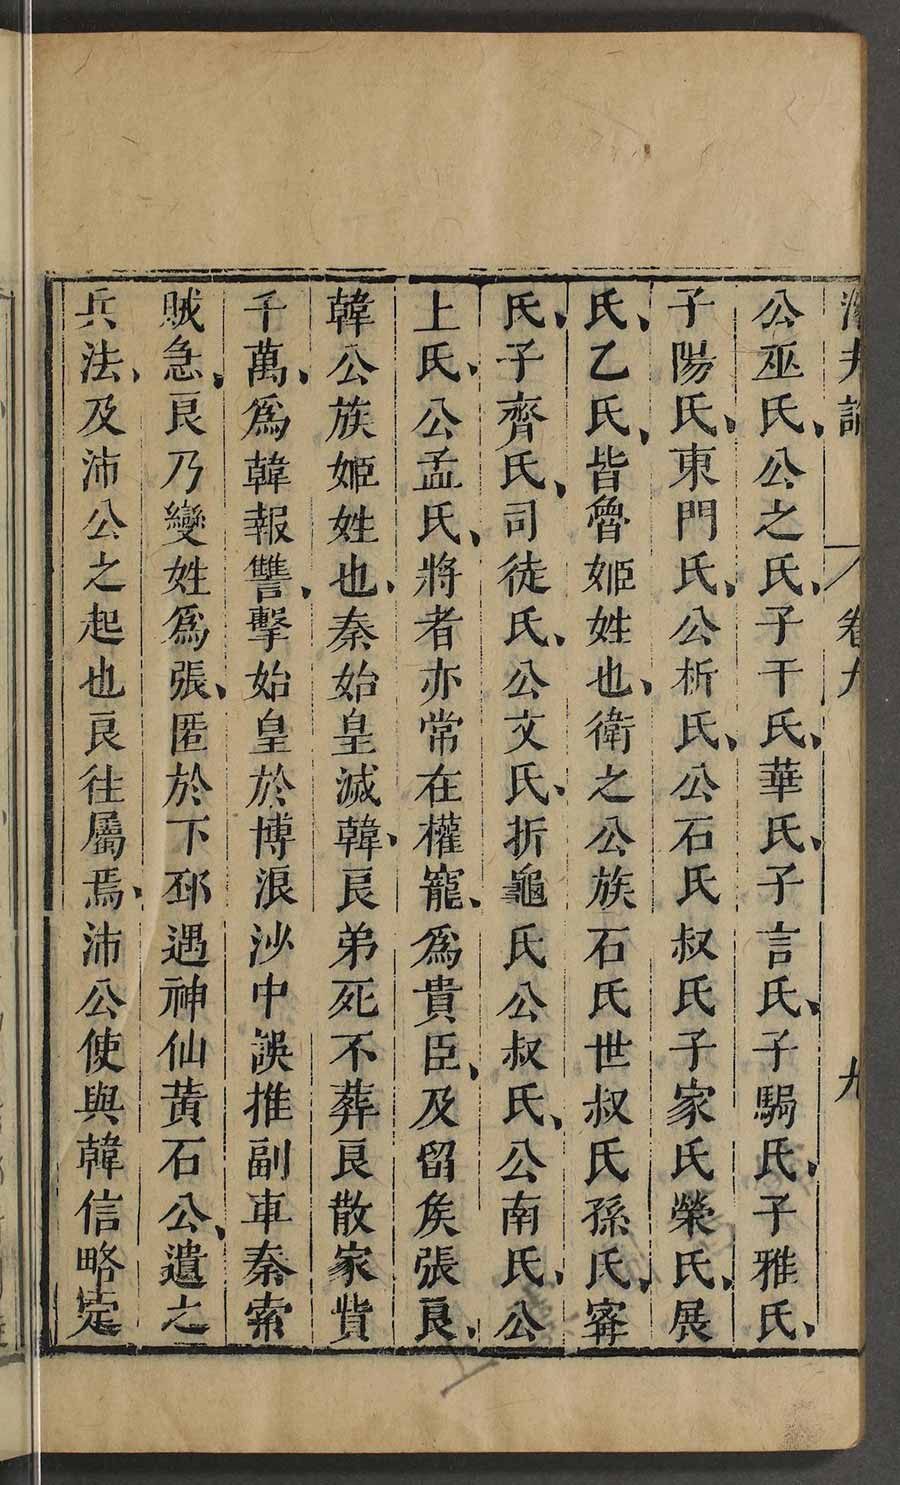 潛夫論 卷九 九
公巫氏、公之氏、子干氏、華氏、子言氏、子駒氏、子雅氏、
子陽氏、東門氏、公析氏、公石氏叔氏子家氏榮氏、展
氏、乙氏、皆魯姬姓也、衛之公族石氏世叔氏孫氏、甯
氏、子齊氏、司徒氏、公文氏、折龜氏公叔氏、公南氏、公
上氏、公孟氏、將者亦常在權寵、爲貴臣、及留矦張良、
韓公族姬姓也、秦始皇滅韓、良弟死不葬良散家貲
千萬、爲韓報讐、擊始皇於博浪沙中誤推副車秦索
賊急、良乃變姓爲張、匿於下邳遇神仙黃石公、遺之
兵法、及沛公之起也良往屬焉、沛公使與韓信略定